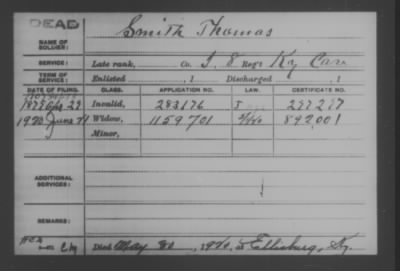 DEAD
Smith Thomas
NAME OF
SOLDIER:
SERVICE: Late rank, Co. I, 8 Reg't Ky Cav
TERM OF
SERVICE: Enlisted , 1 Discharged , 1
DATE OF FILING. CLASS. APPLICATION NO. LAW. CERTIFICATE NO.
29 Invalid, 283176 297287
1920 June 11 Widow, 1159701 892001
Minor,
ADDITIONAL
SERVICES:
REMARKS:
Died May 1920, at Ellisburg, Ky.